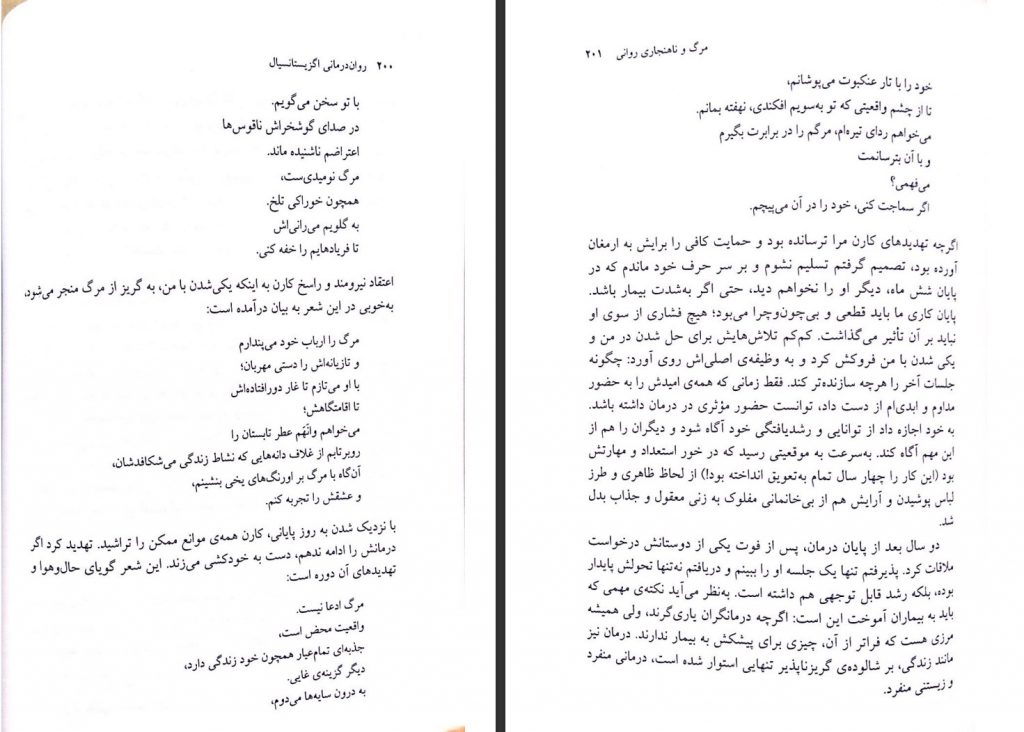 ۲۰۰ روان‌درمانی اگزیستانسیال
با تو سخن می‌گویم.
در صدای گوشخراش ناقوس‌ها
اعتراضم ناشنیده ماند.
مرگ نومیدی‌ست،
همچون خوراکی تلخ.
به گلویم می‌رانی‌اش
تا فریادهایم را خفه کنی.
اعتقاد نیرومند و راسخ کارن به اینکه یکی‌شدن با من، به گریز از مرگ منجر می‌شود،
به‌خوبی در این شعر به بیان درآمده است:
مرگ را ارباب خود می‌پندارم
و تازیانه‌اش را دستی مهربان؛
با او می‌تازم تا غار دورافتاده‌اش
تا اقامتگاهش؛
می‌خواهم وانَهَم عطر تابستان را
روبرتابم از غلاف دانه‌هایی که نشاط زندگی می‌شکافدشان،
آن‌گاه با مرگ بر اورنگ‌های یخی بنشینم،
و عشقش را تجربه کنم.
با نزدیک شدن به روز پایانی، کارن همه‌ی موانع ممکن را تراشید. تهدید کرد اگر
درمانش را ادامه ندهم، دست به خودکشی می‌زند. این شعر گویای حال‌وهوا و
تهدیدهای آن دوره است:
مرگ ادعا نیست.
واقعیت محض است،
جذبه‌ای تمام‌عیار همچون خود زندگی دارد،
دیگر گزینه‌ی غایی.
به درون سایه‌ها می‌دوم،
مرگ و ناهنجاری روانی ۲۰۱
خود را با تار عنکبوت می‌پوشانم،
تا از چشم واقعیتی که تو به‌سویم افکندی، نهفته بمانم.
می‌خواهم ردای تیره‌ام، مرگم را در برابرت بگیرم
و با آن بترسانمت
می‌فهمی؟
اگر سماجت کنی، خود را در آن می‌پیچم.
اگرچه تهدیدهای کارن مرا ترسانده بود و حمایت کافی را برایش به ارمغان
آورده بود، تصمیم گرفتم تسلیم نشوم و بر سر حرف خود ماندم که در
پایان شش ماه، دیگر او را نخواهم دید، حتی اگر به‌شدت بیمار باشد.
پایان کاری ما باید قطعی و بی‌چون‌وچرا می‌بود؛ هیچ فشاری از سوی او
نباید بر آن تأثیر می‌گذاشت. کم‌کم تلاش‌هایش برای حل شدن در من و
یکی شدن با من فروکش کرد و به وظیفه‌ی اصلی‌اش روی آورد: چگونه
جلسات آخر را هرچه سازنده‌تر کند. فقط زمانی که همه‌ی امیدش را به حضور
مداوم و ابدی‌ام از دست داد، توانست حضور مؤثری در درمان داشته باشد.
به خود اجازه داد از توانایی و رشدیافتگی خود آگاه شود و دیگران را هم از
این مهم آگاه کند. به‌سرعت به موقعیتی رسید که در خور استعداد و مهارتش
بود (این کار را چهار سال تمام به‌تعویق انداخته بود!) از لحاظ ظاهری و طرز
لباس پوشیدن و آرایش هم از بی‌خانمانی مفلوک به زنی معقول و جذاب بدل
شد.
دو سال بعد از پایان درمان، پس از فوت یکی از دوستانش درخواست
ملاقات کرد. پذیرفتم تنها یک جلسه او را ببینم و دریافتم نه‌تنها تحولش پایدار
بوده، بلکه رشد قابل توجهی هم داشته است. به‌نظر می‌آید نکته‌ی مهمی که
باید به بیماران آموخت این است: اگرچه درمانگران یاری‌گرند، ولی همیشه
مرزی هست که فراتر از آن، چیزی برای پیشکش به بیمار ندارند. درمان نیز
مانند زندگی، بر شالوده‌ی گریزناپذیر تنهایی استوار شده است، درمانی منفرد
و زیستنی منفرد.